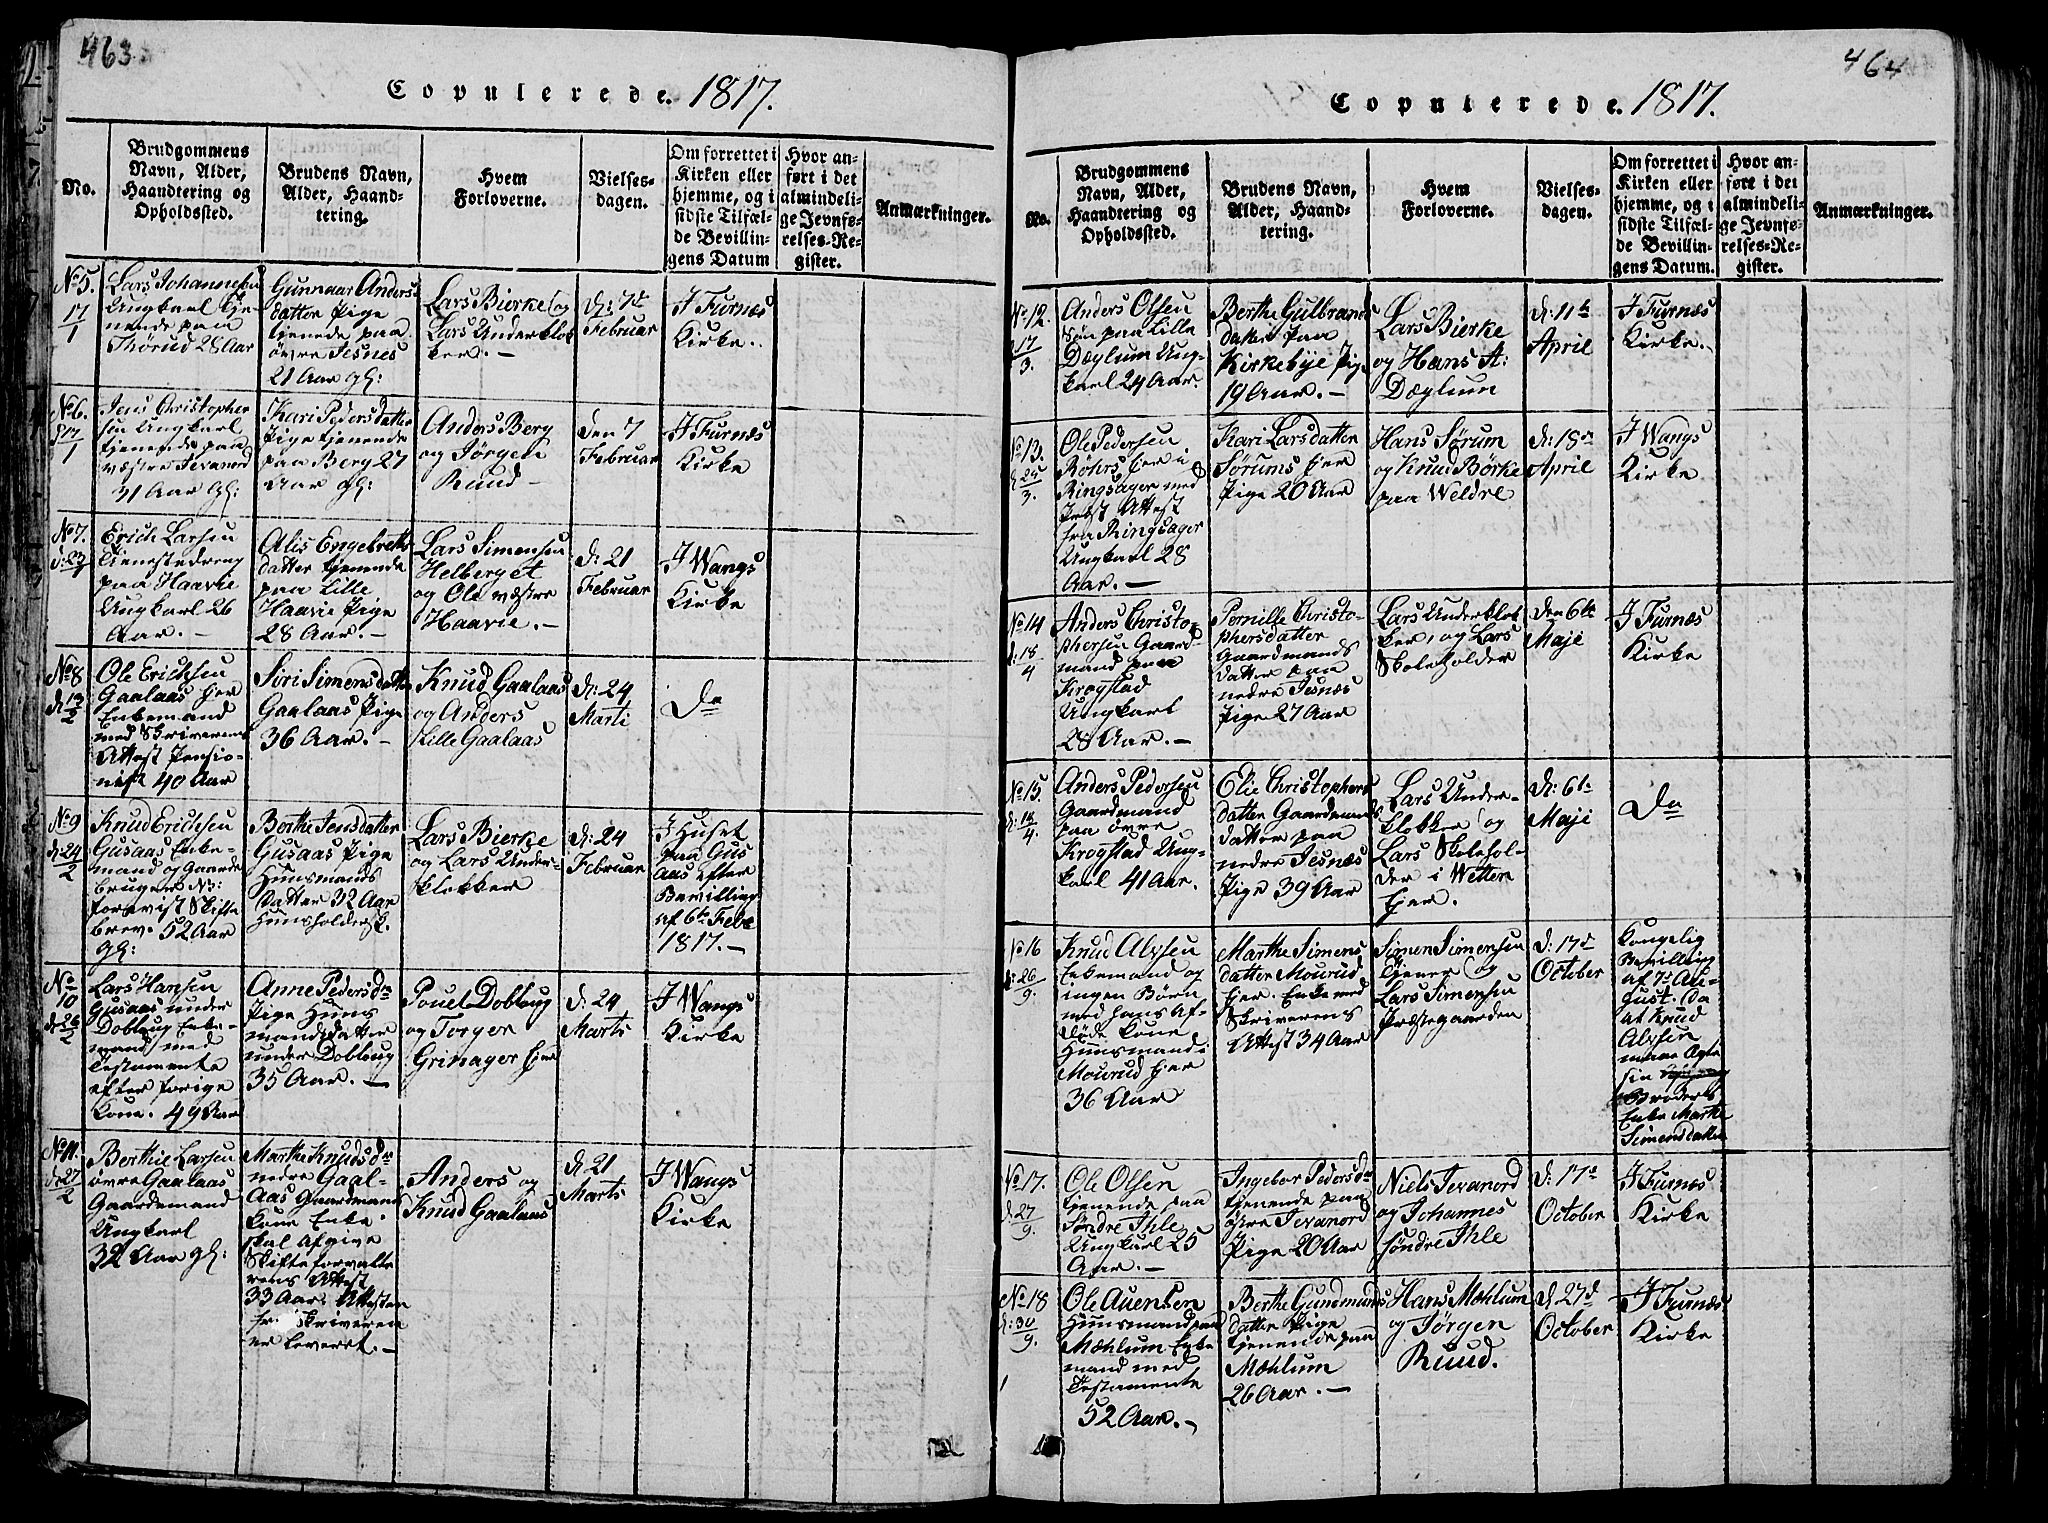 463
Copulerede. 1817.
No.
Brudgommens
Navn, Alder,
Haandtering og
Opholdssted.
Brudens Navn,
Alder, Haand-
tering.
Hvem
Forloverne.
Vielses-
dagen.
Om forrettet i
Kirken eller
hjemme, og i
sidste Tilfæl-
de Bevillin-
gens Datum
Hvor an-
ført i det
almindeli-
ge Jevnfø-
relses-Re-
gister.
Anmærkninger.
No 5.
17/1
Lars Johannesen
Ungkarl tje-
nende paa
Thørud 28 Aar
Gunnar Anders
datter Pige
tjenede paa
øvre Jesnes
21 Aar gl:
Lars Bierke og
Lars Underklok
ker. -
d: 7de
Februar
I Furnæs
Kirke.
No 6.
17/1
Jens Christopher
sen Ungkarl
tjenende paa
væstre Jevanord
31 Aar gl:
Kari Pedersdatter
Pige tjenende
paa Berg 27
Aar gl:
Anders Berg
og Jørgen
Ruud -
den 7
Februar
I Furnæs
Kirke
No 7.
d: 23/1
Erich Larsen
Tienestedreng
paa Haavie
Ungkarl 26
Aar. -
Alis Engebrets
datter tjenende
paa Lille
Haavie Pige
28 Aar. -
Lars Simensen
Helberget
og Ole væstre
Haavie. -
d: 21
Februar
I Wangs
Kirke
No 8
d 13/2
Ole Erichsen
Gaalaas her
Enkemand
med Skriverens
Attest Pensio-
nist 40 Aar
Siri Simensdatter
Gaalaas Pige
36 Aar. -
Knud Gaalaas
og Anders
Lille Gaalaas
d: 24
Marti
Do
No 9
d: 24/2
Knud Erichsen
Gusaas Enke-
mand og Gaard
bruger NB:
forevist Skifte
brev. 52 Aar
gl:
Berthe Jensdatter
Gusaas Pige
Huusmands
Datter 32 Aar
Huusholdersk.
Lars Bierke
og Lars Under-
klokker
d: 24
Februar
I Huset
paa Gus
aas efter
Bevilling
af 6te Febr
1817. -
No
10
d: 26/2
Lars Hansen
Gusaas under
Doblaug Enke-
mand med
Testamente
efter forige
Kone. 49 Aar
Anne Pedersdr
Pige Huus
mandsdatter
under Doblaug
35 Aar. -
Pouel Doblaug
og Torger
Grinager her
d: 24
Marts
I Wangs
Kirke
No 11.
d: 27/2
Berthie Larsen
øvre Gaalaas
Gaardemand
Ungkarl
32 Aar gl:
Marthe Knudsdr
nedre Gaal-
aas Gaardmands
kone Enke.
skal afgive
Skifteforvalte
rens Attest
33 Aar. Attesten
Skriveren
er leveret. -
Anders og
Knud Gaalaas
d: 21
Marts
I Wangs
Kirke
464
Copulerede. 1817.
No.
Brudgommens
Navn, Alder,
Haandtering og
Opholdssted.
Brudens Navn,
Alder, Haand-
tering.
Hvem
Forloverne.
Vielses-
dagen.
Om forrettet i
Kirken eller
hjemme, og i
sidste Tilfæl-
de Bevillin-
gens Datum.
Hvor an-
ført i det
almindeli-
ge Jevnfø-
relses-Re-
gister.
Anmærkninger.
No 12.
17/3.
Anders Olsen
Søn paa Lille
Dæglum Ung-
karl 24 Aar.
Berthe Gulbrands
datter paa
Kirkebye Pige
19 Aar. -
Lars Bierke
og Hans A:
Dæglum
d: 11te
April
I Furnæs
Kirke.
No 13.
d 25/3.
Ole Pedersen
Rohrs her i
Ringsager med
Præst Attest
fra Ringsager
Ungkarl 28
Aar. -
Kari Larsdatter
Sørums her
Pige 20 Aar
Hans Sørum
og Knud Børke
paa Weldre
d: 18de
April
I Wangs
Kirke
No 14
d: 18/4
Anders Christo-
phersen Gaard
mand paa
Krogstad
Ungkarl
28 Aar. -
Pernille Christo-
phersdatter
Gaardmands
datter paa
nedre Jesnæs
Pige 27 Aar
Lars Underklok
ker, og Lars
Skoleholder
den 6te
Maji
I Furnæs
Kirke
No 15.
d: 18/4
Anders Pedersen
Gaardmand
paa øvre
Krogstad Ung-
karl 41 Aar.
Elie Christophers
datter Gaardmands
datter paa
nedre Jesnæs
Pige 39 Aar
Lars Under-
klokker og
Lars Skolehol-
der i Wetten
her.
d: 6te
Maji
Do
No 16
d: 26/9.
Knud Alvsen
Enkemand og
ingen Børn
med hans Af-
døde kone
Huusmand i
Mourud her
36 Aar
Marthe Simens
datter Mourud
her. Enke med
Skriverens
Attest 34 Aar
Simen Simensen
tjener og
Lars Simensen
Præstegaarden
d: 17de
October
Kongelig
Bevilling
af 7de Au-
gust. Da
at Knud
Alvsen
maae Ægte
sin
Broders
Enke Marthe
Simensdatter
No 17.
d: 27/9.
Ole Olsen
tjenende paa
Søndre Ihle
Ungkarl 25
Aar. -
Ingebor Pedersdr
tjenende paa
øvre Jevanord
Pige 20 Aar
Niels Jevanord
og Johannes
søndre Ihle
d: 17de
October
I Furnæs
Kirke
No 18
d: 30/9.
Ole Auensen
Huusmand paa
Mæhlum Enke
mand med
Testamente
52 Aar. -
Berthe Gundmunds
datter Pige
tjenende paa
Mæhlum
26 Aar. -
Hans Mæhlum
og Jørgen
Ruud.
d 27de
October
I Furnæs
Kirke